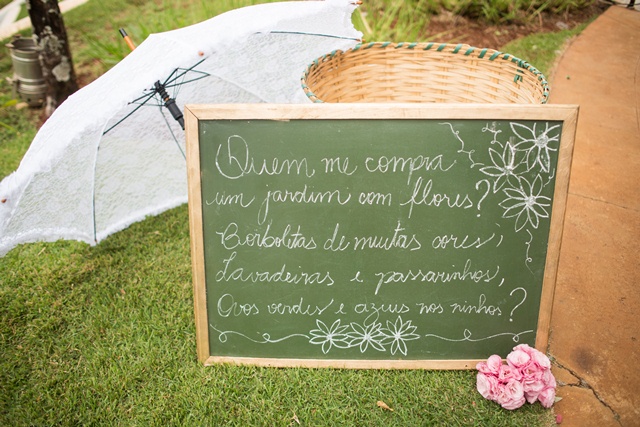 Quem me compra
um jardim com flores?
Borboletas de muitas cores,
Lavadeiras e passarinhos,
Ovos verdes e azuis nos ninhos?